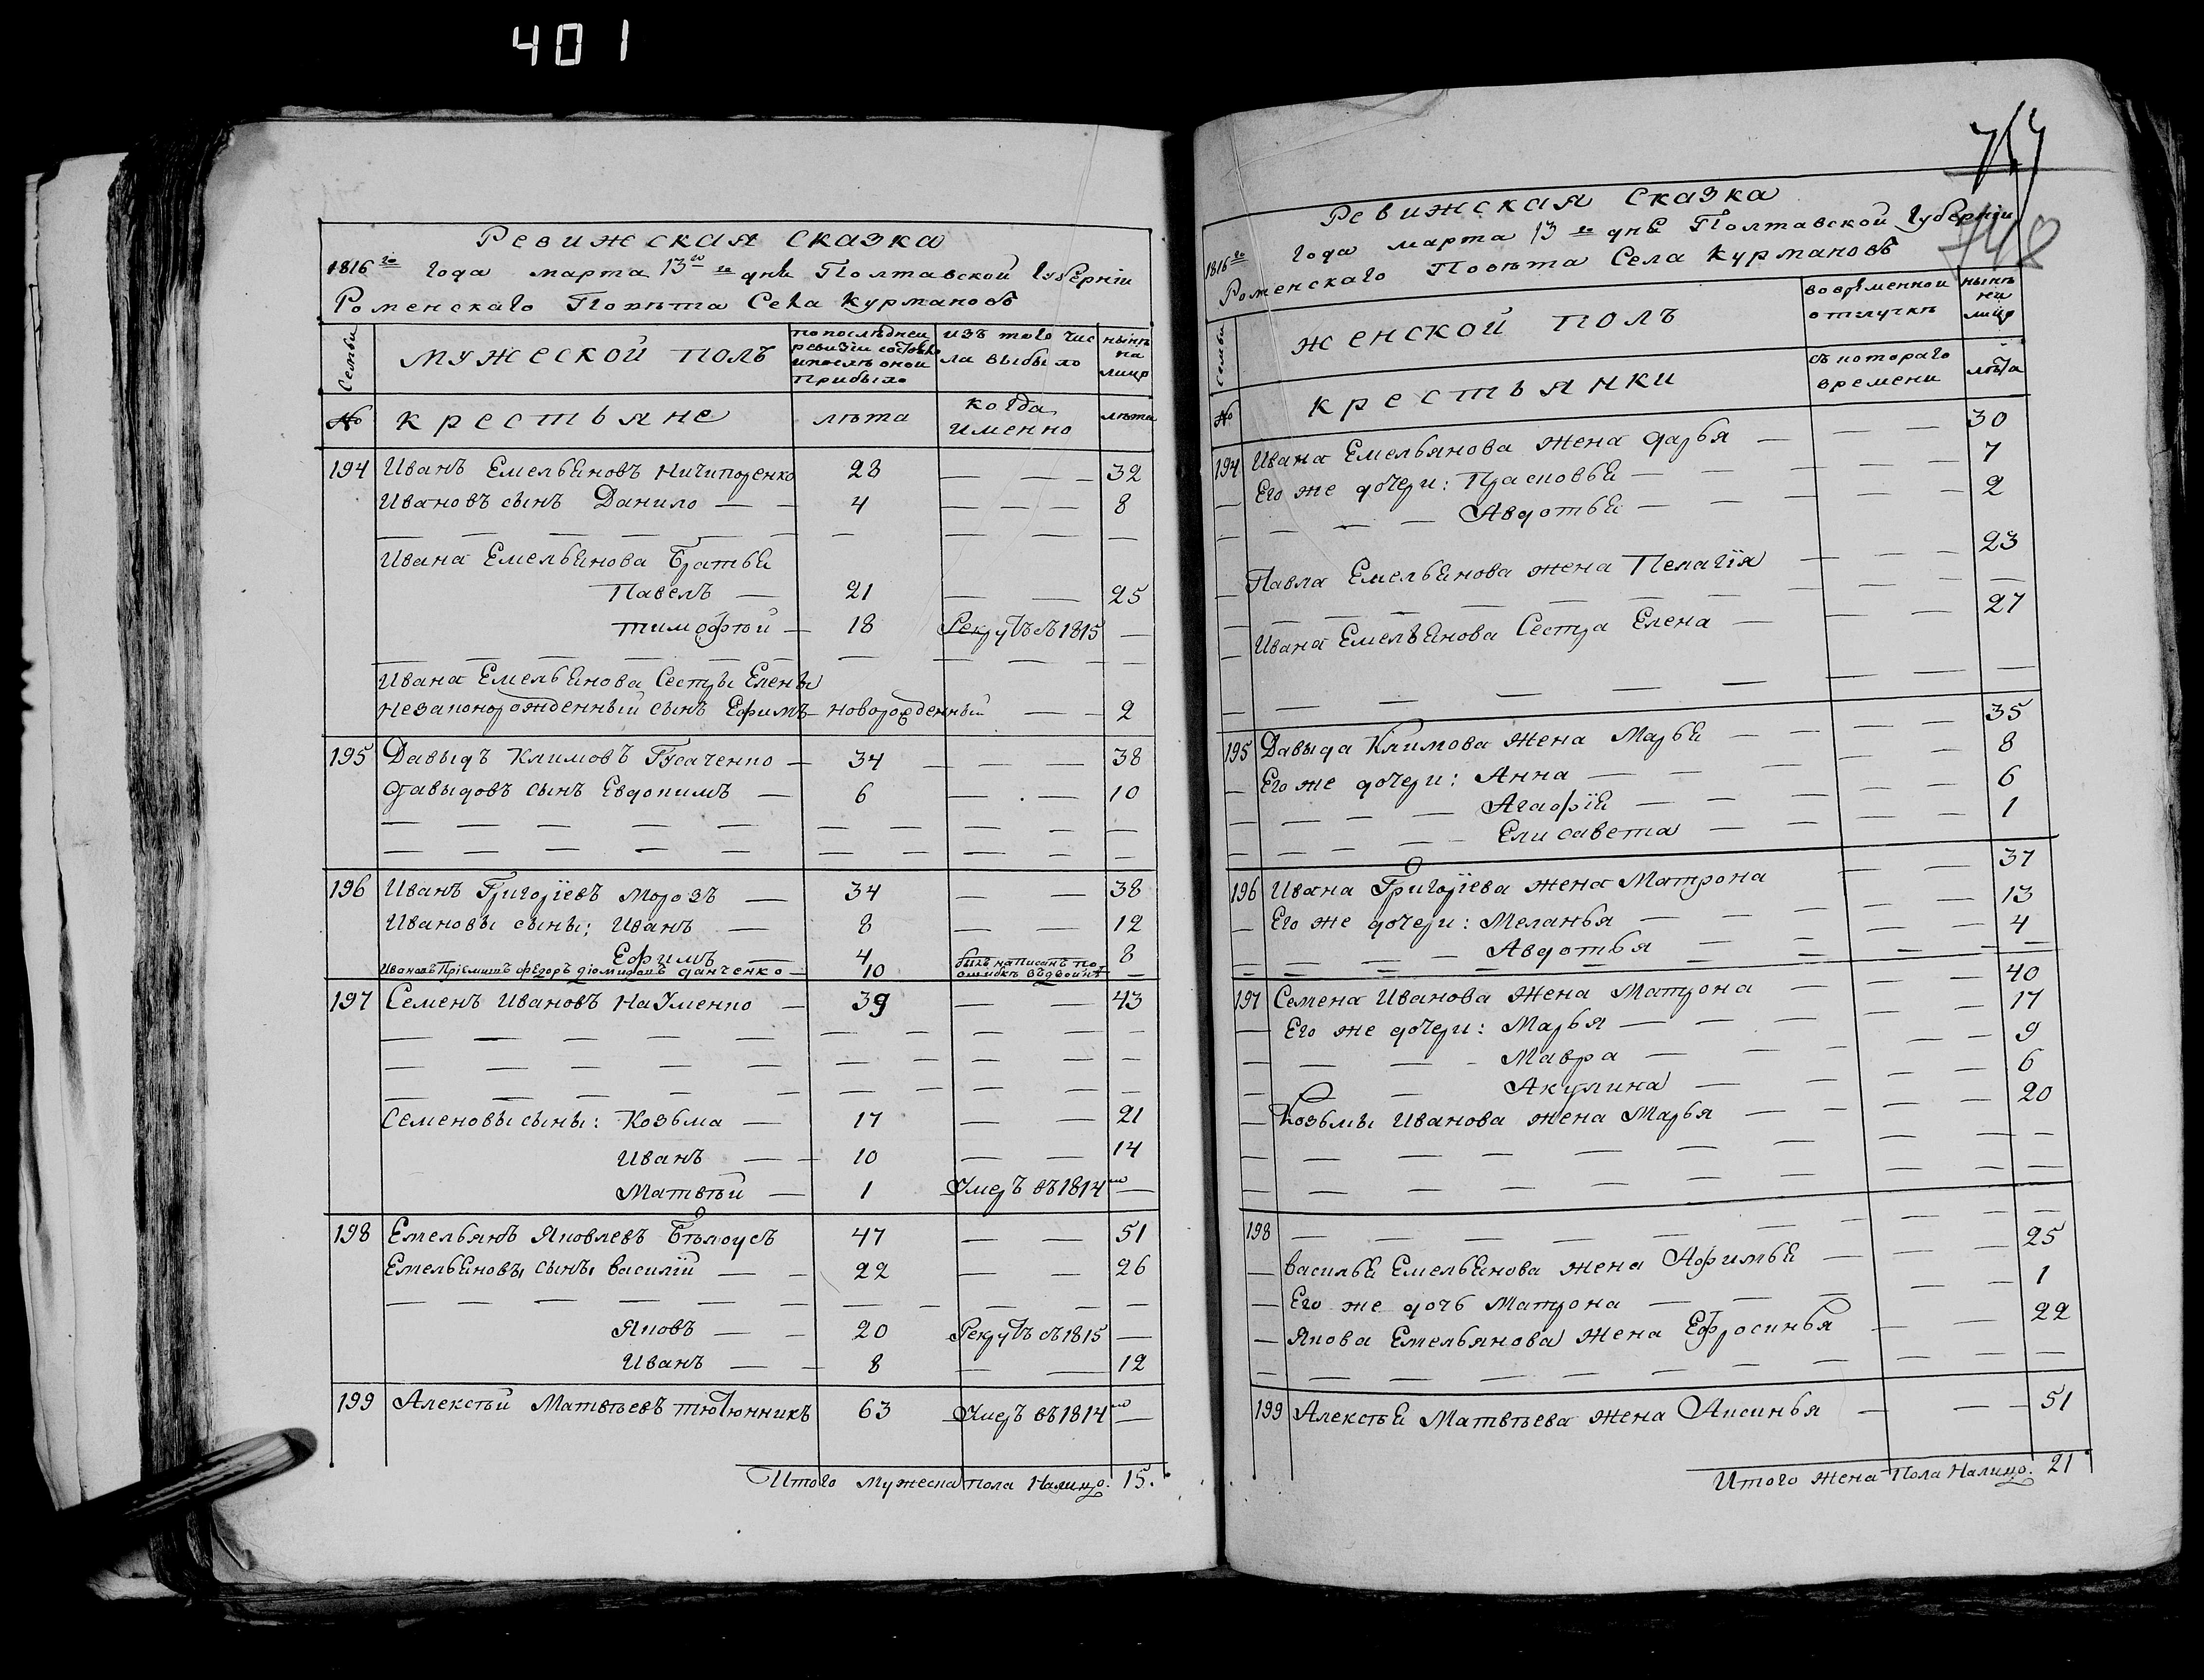 401
Ревижская сказка
1816го года марта 13го дня Полтавской Губерніи
Роменскаго Повѣта Села Курмановъ
Семьи
мужеской полъ
по последней ревизіи состояло и после оной прибыло
изъ того числа выбыло
нынѣ на лицо
№
крестьяне
лѣта
когда именно
лѣта
194 Иванъ Емельяновъ Ничипоренко 28 — — — 32
Ивановъ сынъ Данило — — 4 — — — 8
Ивана Емельянова Братья
Павелъ — 21 — — 25
тимофѣй — 18 Рекрутъ съ 1815 —
Ивана Емельянова Сестры Елены
незаконорожденный сынъ Ефимъ — новорожденный — — 2
195 Давыдъ Климовъ Гусаченко — 34 — — — 38
Давыдовъ сынъ Евдокимъ — 6 — — 10
196 Иванъ Григоріевъ Морозъ — 34 — — 38
Ивановы сыны: Иванъ — 8 — — 12
Ефимъ — 4 8
Ивановъ Пріемышъ Федоръ Діомидовъ Данченко — 10 былъ написанъ по ошибкѣ въдвойнѣ —
197 Семенъ Ивановъ Науменко — 39 — — 43
Семеновы сыны: Козьма — 17 — — 21
Иванъ — — 10 — — 14
Матвѣй — 1 Умеръ въ 1814го —
198 Емельянъ Яковлевъ Бѣлоусъ 47 — — 51
Емельяновы сыны Василій — — 22 — — 26
Яковъ — — 20 Рекрутъ съ 1815 —
Иванъ — — 8 — — 12
199 Алексѣй Матвѣевъ тютюнникъ 63 Умеръ въ 1814го —
Итого мужеска пола налицо. 15.
748
Ревижская сказка
1816го года марта 13го дня Полтавской Губерніи
Роменскаго Повѣта Села Курмановъ
Семьи
женской полъ
во временной отлучкѣ
нынѣ на лицо
№
крестьянки
съ котораго времени
лѣта
194 Ивана Емельянова жена Дарья — — — 30
— Его же дочери: Прасковья — — — 7
Авдотья — — — 2
— Павла Емельянова жена Пелагія — — — 23
— Ивана Емельянова Сестра Елена — — — 27
195 Давыда Климова жена Марья — — — 35
— Его же дочери: Анна — — — 8
Агафія — — — 6
Елисавета — — — 1
196 Ивана Григоріева жена Матрона — — 37
— Его же дочери: Меланья — — — 13
Авдотья — — — 4
197 Семена Иванова жена Матрона — — — 40
— Его же дочери: Марья — — — 17
Мавра — — — 9
Акулина — — — 6
— Козьмы Иванова жена Марья — — — 20
198 — — — — —
— Василья Емельянова жена Афимья — — — 25
— Его же дочь Матрона — — — 1
— Якова Емельянова жена Ефросинья — — 22
199 Алексѣя Матвѣева жена Аксинья — — — 51
Итого жена Пола Налицо. 21